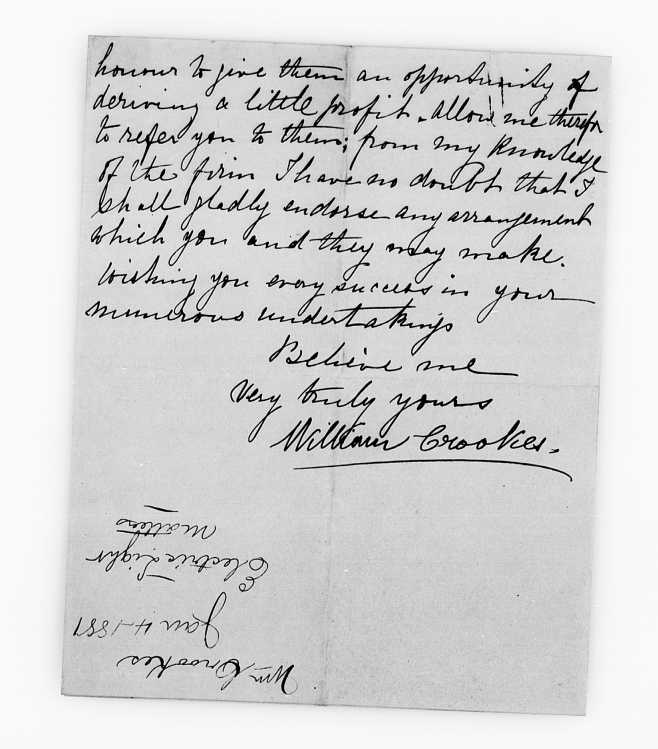 honour to give them an opportunity of
deriving a little profit. Allow me therefor
to refer you to them; from my knowledge
of the firm I have no doubt that I
shall gladly endorse any arrangement
which you and they may make.
Wishing you every success in your
numerous undertakings
Believe me
Very truly yours
William Crookes.
Wm Crookes
Jan 4-1881
Electric Light
Matters